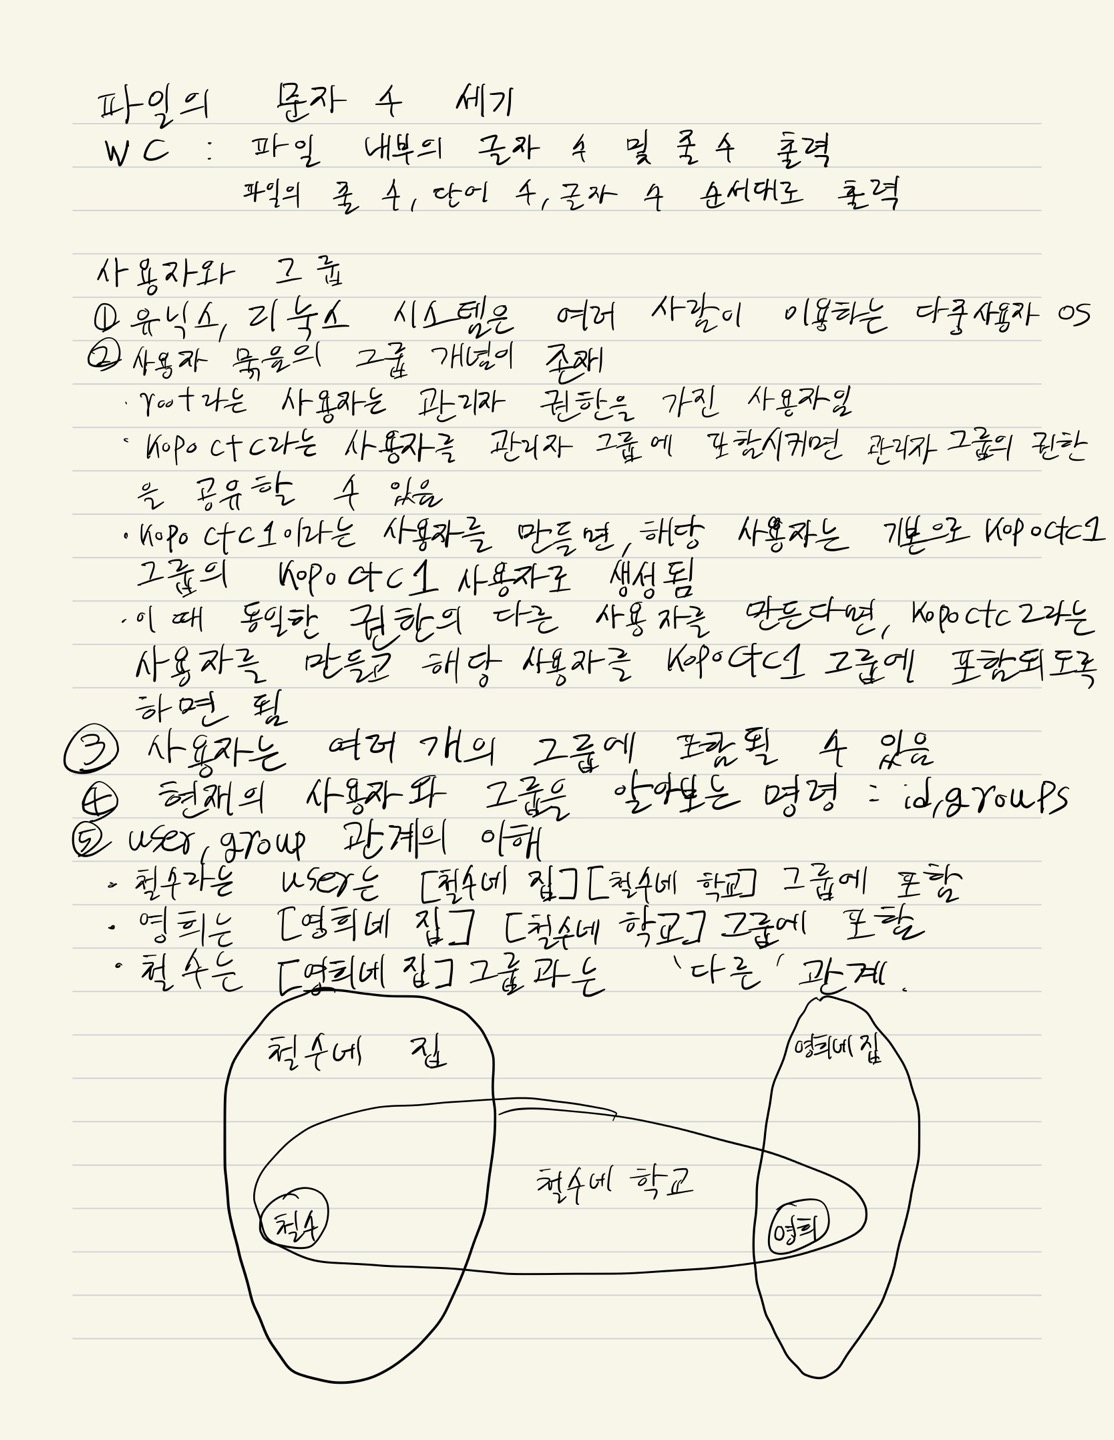 파일의 문자 수 세기
WC : 파일 내부의 글자 수 및 줄 수 출력
파일의 줄 수, 단어 수, 글자 수 순서대로 출력
사용자와 그룹
① 유닉스, 리눅스 시스템은 여러 사람이 이용하는 다중사용자 OS
② 사용자 묶음의 그룹 개념이 존재
· root라는 사용자는 관리자 권한을 가진 사용자임
· kopoctc라는 사용자를 관리자 그룹에 포함시키면 관리자 그룹의 권한
을 공유할 수 있음
· kopoctc1이라는 사용자를 만들면, 해당 사용자는 기본으로 kopoctc1
그룹의 kopoctc1 사용자로 생성됨
· 이 때 동일한 권한의 다른 사용자를 만든다면, kopoctc2라는
사용자를 만들고 해당 사용자를 kopoctc1 그룹에 포함되도록
하면 됨
③ 사용자는 여러 개의 그룹에 포함될 수 있음
④ 현재의 사용자와 그룹을 알아보는 명령 : id, groups
⑤ user, group 관계의 이해
· 철수라는 user는 [철수네 집][철수네 학교] 그룹에 포함
· 영희는 [영희네 집] [철수네 학교] 그룹에 포함
· 철수는 [영희네 집] 그룹과는 '다른' 관계.
철수네 집
영희네 집
철수네 학교
철수
영희